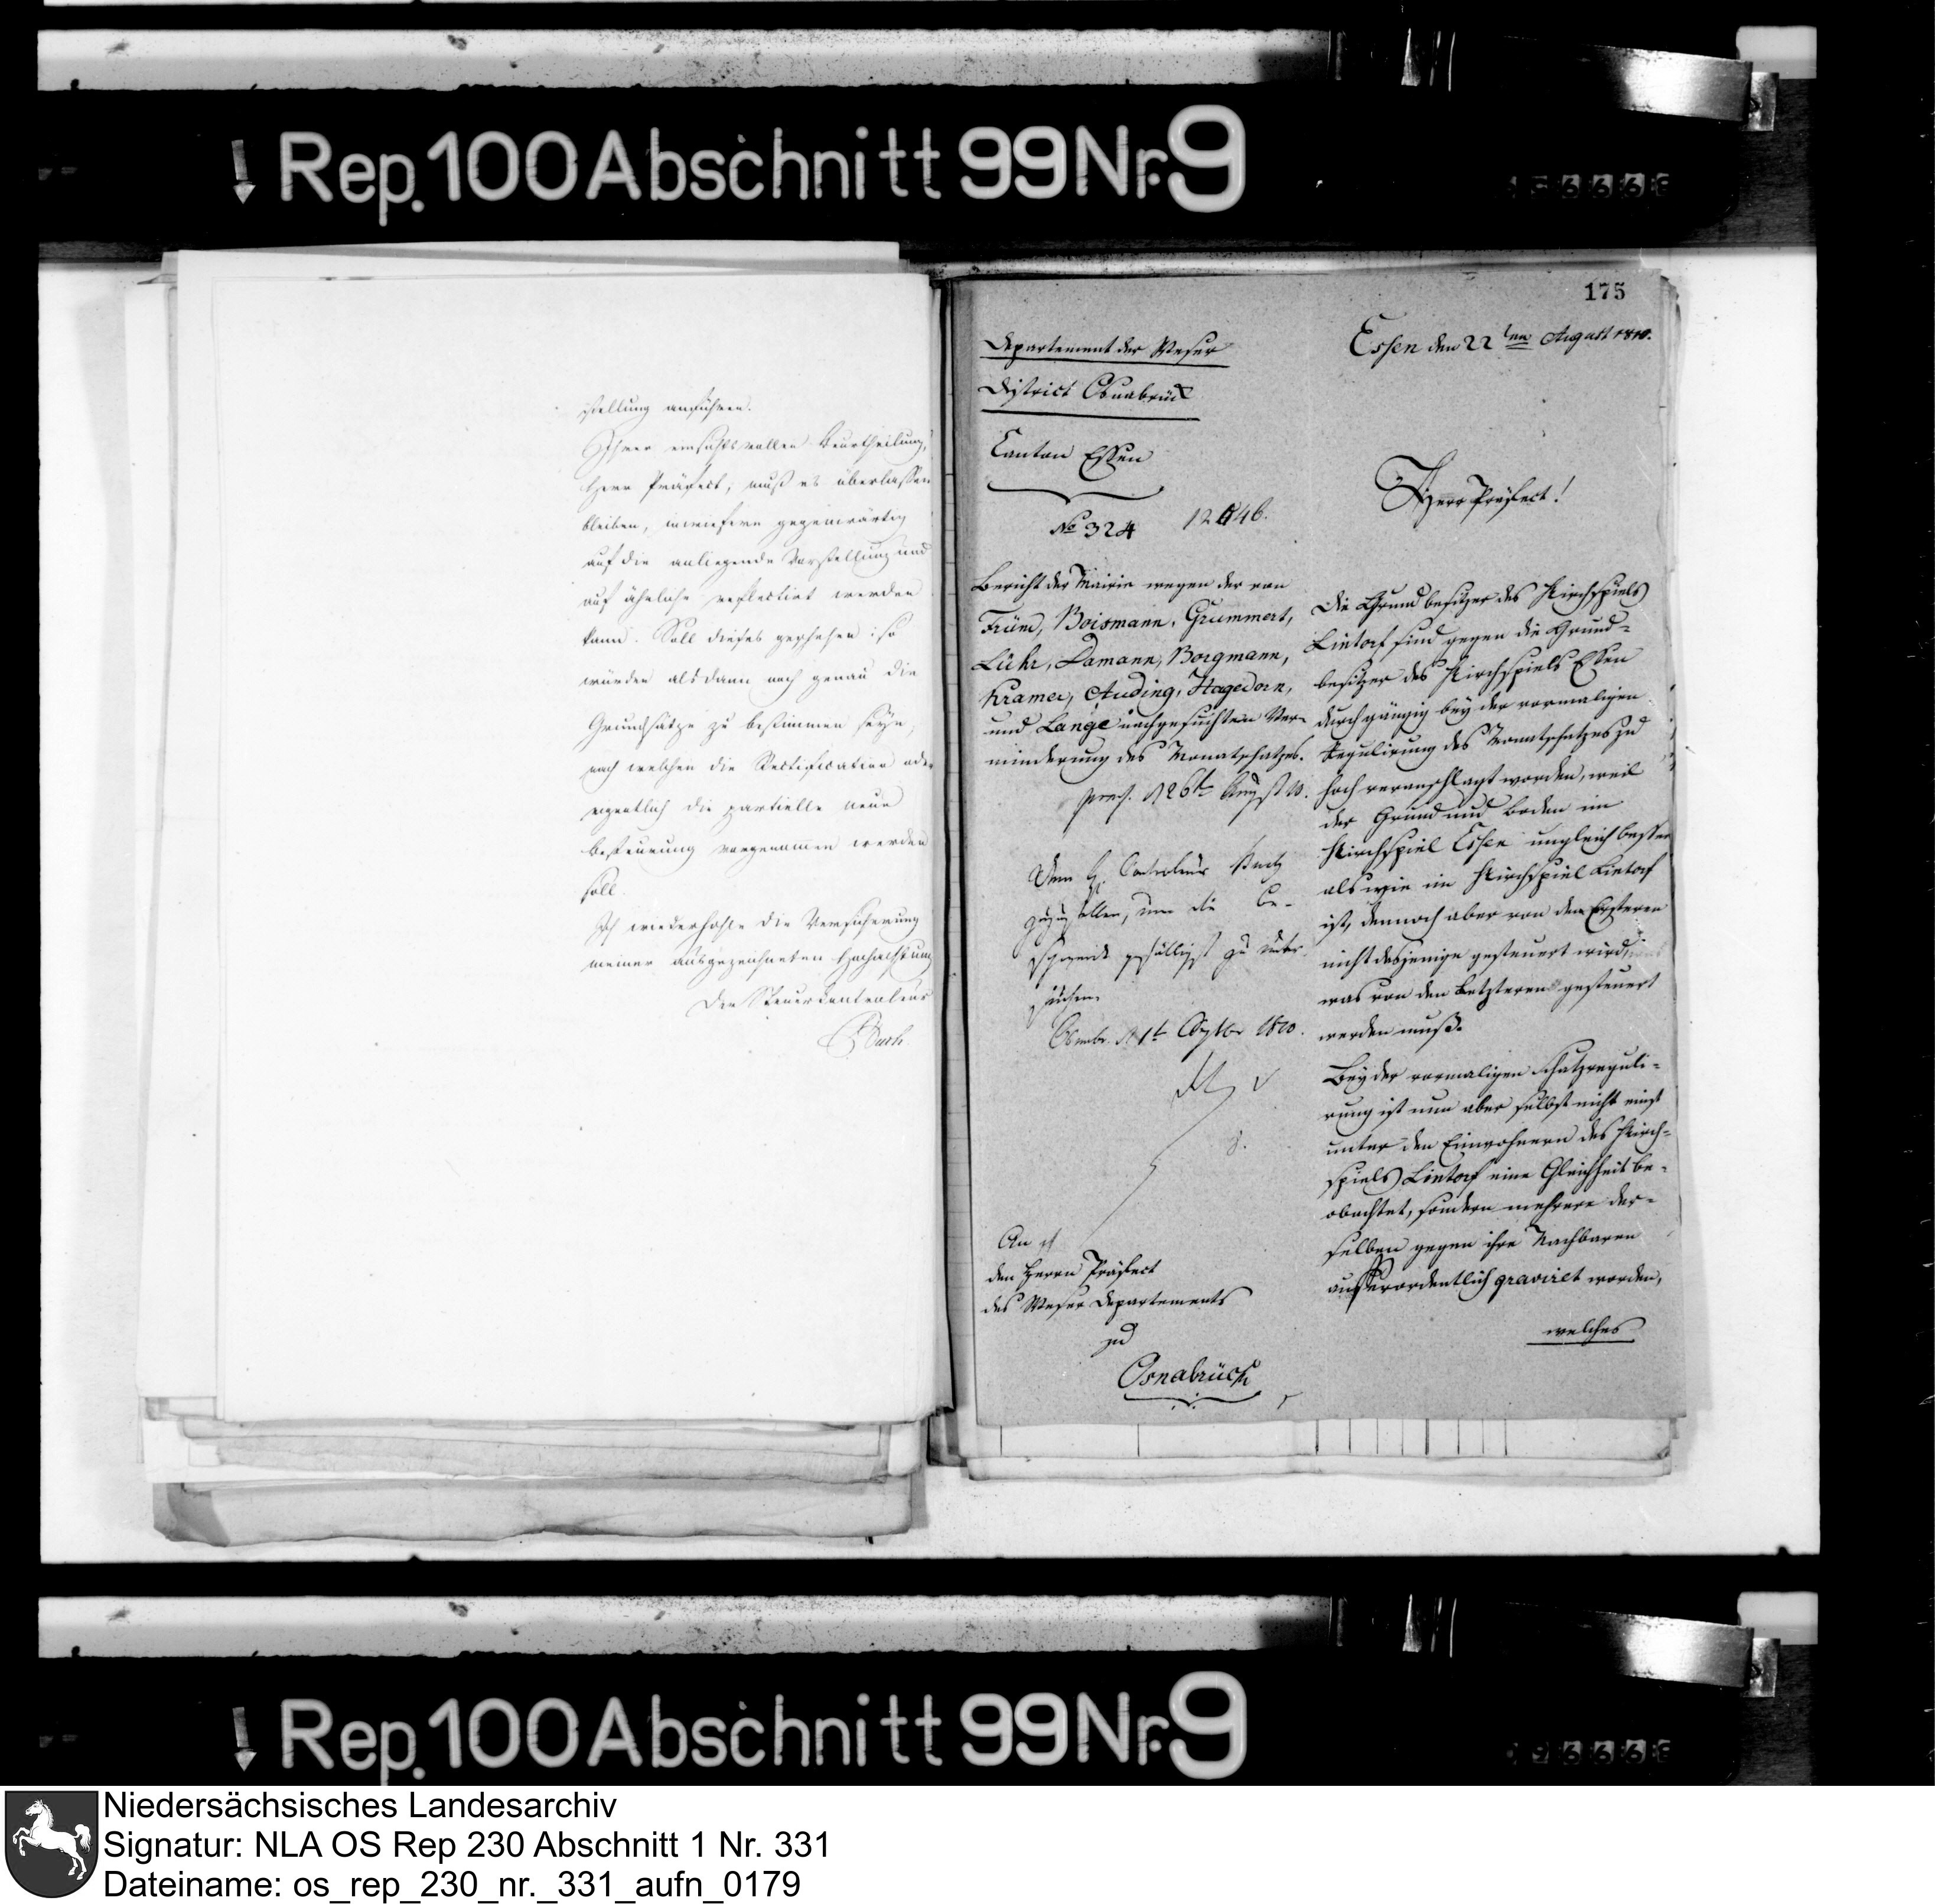 Rep. 100 Abschnitt 99 Nr. 9
stellung anführen.
Ihrer einsichtsvollen Beurtheilung,
Herr Präfect, muß es überlassen
bleiben, inwiefern gegenwärtig
auf die anliegende Vorstellung und
auf ähnliche reflectirt werden
kann. Soll dieses geschehen: so
würden alsdann noch genau die
Grundsätze zu bestimmen seyn,
nach welchen die Rectification oder
eigentlich die partielle neue
Besteuerung vorgenommen werden
soll.
Ich wiederhohle die Versicherung
meiner ausgezeichneten Hochachtung
Der Steuercontroleur
175
Departement der Weser
District Osnabrück
Canton Essen
No 324
Essen den 22ten August 1810.
Herr Präfect!
Bericht der Mairie wegen der von
Früm, Boismann, Grummert,
Lühr, Damann, Borgmann,
Kramer, Auding, Hagedorn,
und Lange nachgesuchten Ver-
minderung des Monatschatzes.
praes. d 26t August 10.
Dem H. Controleur
zuzustellen, um die Be-
gefälligst zu unter-
suchen.
Osnabr. d 1t Septbr 1810.
An
den Herrn Präfect
des Weser Departements
zu
Osnabrück
Die Grundbesitzer des Kirchspiels
Lintorf sind gegen die Grund-
besitzer des Kirchspiels Essen
durchgängig bey der vormaligen
Regulirung des Monatschatzes zu
hoch veranschlagt worden, weil
der Grund und Boden im
Kirchspiel Essen ungleich besser
als wie im Kirchspiel Lintorf
ist, dennoch aber von den Ersteren
nicht dasjenige gesteuert wird,
was von den Letzteren gesteuert
werden muß.
Bey der vormaligen Schatzreguli-
rung ist nun aber selbst nicht einst
unter den Einwohnern des Kirch-
spiels Lintorf eine Gleichheit be-
obachtet, sondern mehrere der-
selben gegen ihre Nachbaren
ausserordentlich gravirt worden,
welches
Rep. 100 Abschnitt 99 Nr. 9
Niedersächsisches Landesarchiv
Signatur: NLA OS Rep 230 Abschnitt 1 Nr. 331
Dateiname: os_rep_230_nr._331_aufn_0179